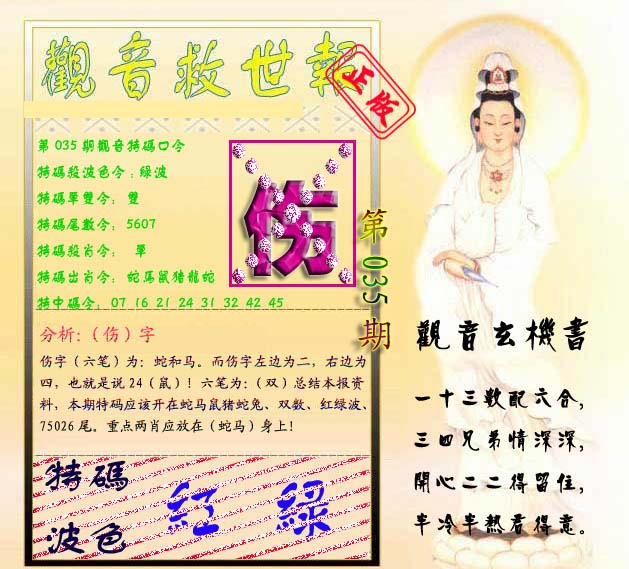 觀音救世報
正版
第035期觀音特碼口令
特碼殺波色令:綠波
特碼單雙令: 雙
特碼尾數令: 5607
特碼殺肖令: 單
特碼出肖令: 蛇馬鼠猪龍蛇
特中碼令: 07 16 21 24 31 32 42 45
伤
第035期
分析:(伤)字
伤字(六笔)为:蛇和马。而伤字左边为二,右边为
四,也就是说24(鼠)!六笔为:(双)总结本报资
料,本期特码应该开在蛇马鼠猪蛇兔、双数、红绿波、
75026尾。重点两肖应放在(蛇马)身上!
特碼
波色
紅 綠
觀音玄機書
一十三數配六合,
三四兄弟情深深,
開心二二得留住,
半冷半熱君得意。